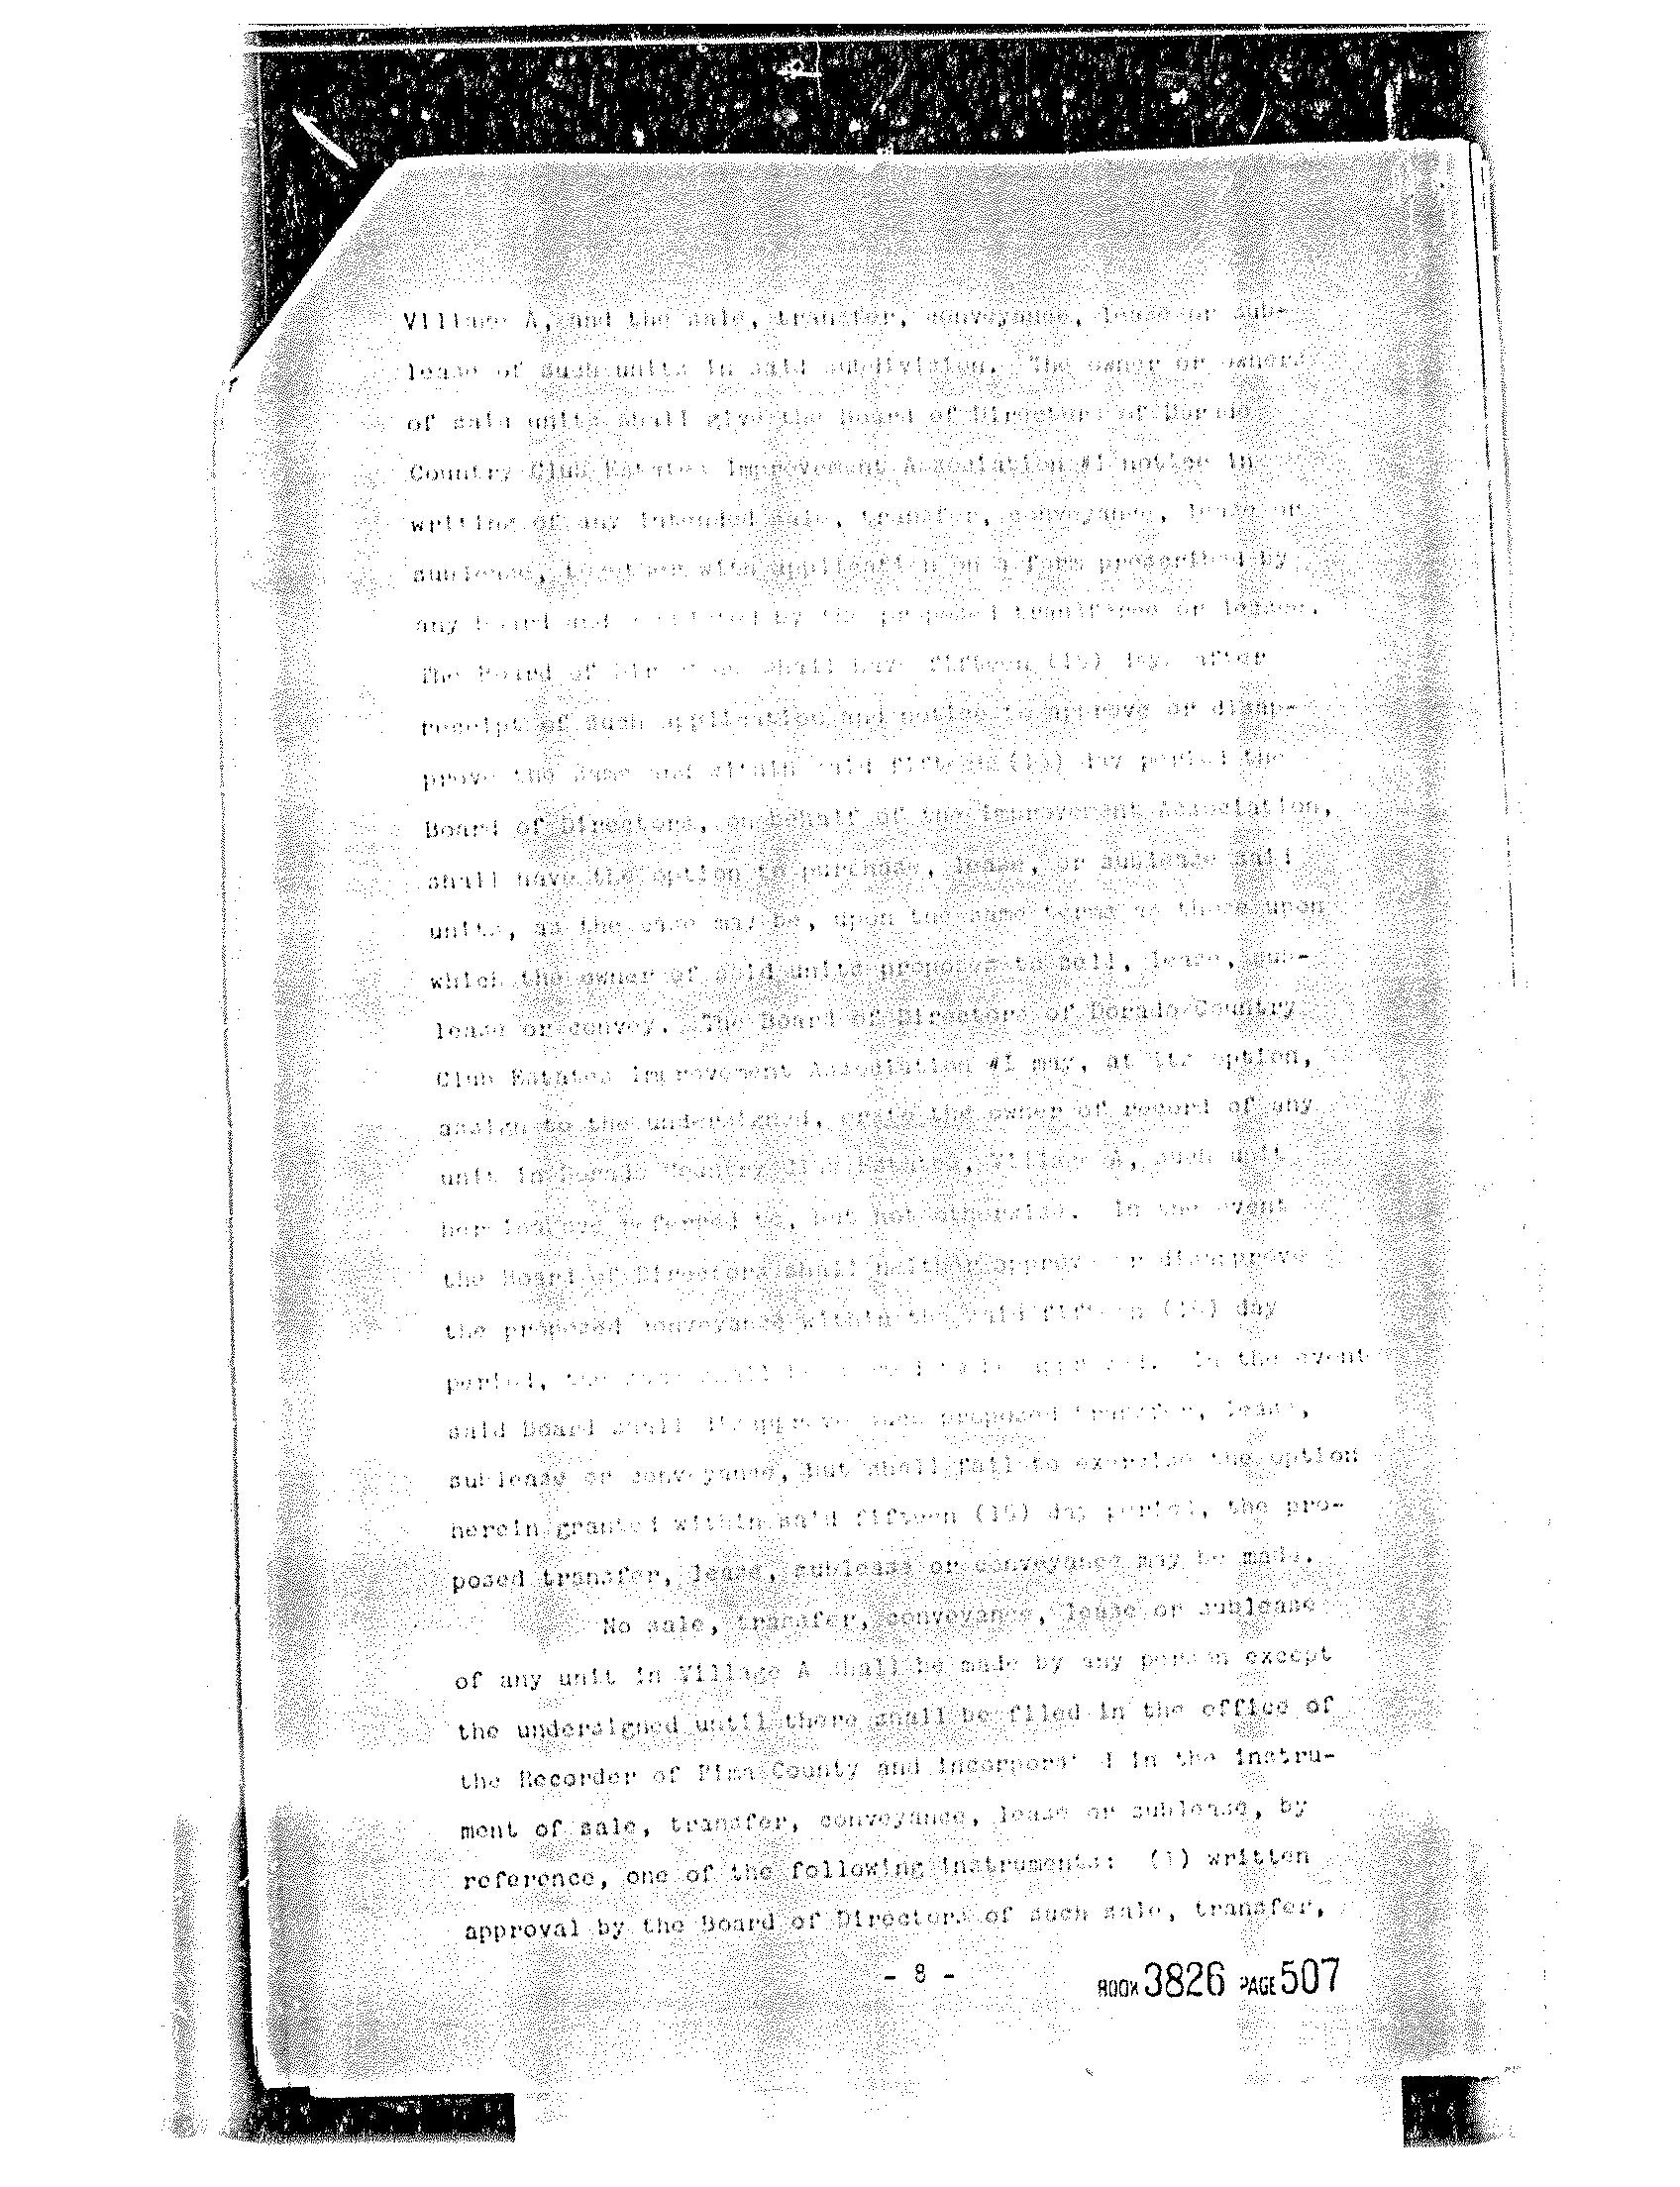 Village A, and the sale, transfer, conveyance, lease or sub-
lease of such units in said subdivision. The owner or owners
of said units shall give the Board of Directors of Dorado
Country Club Estates Improvement Association #1 notice in
writing of any intended sale, transfer, conveyance, lease or
sublease, together with application on a form prescribed by
any board and by the proposed transferee or lessee.
The Board of Directors shall have fifteen (15) days after
receipt of such application and notice to approve or disap-
prove the same and within said fifteen (15) day period the
Board of Directors, on behalf of the Improvement Association,
shall have the option to purchase, lease, or sublease said
units, as the case may be, upon the same terms as those upon
which the owner of said units proposes to sell, lease, sub-
lease or convey. The Board of Directors of Dorado Country
Club Estates Improvement Association #1 may, at its option,
assign to the undersigned, or to the owner of record of any
unit in Dorado Country Club Estates, Village A, such
referred to, but not otherwise. In the event
the Board of Directors shall neither approve or disapprove
the proposed conveyance within the said fifteen (15) day
period, the same shall be In the event
said Board shall disapprove such proposed transfer, lease,
sublease or conveyance, but shall fail to exercise the option
herein granted within said fifteen (15) day period, the pro-
posed transfer, lease, sublease or conveyance may be made.
No sale, transfer, conveyance, lease or sublease
of any unit in Village A shall be made by any person except
the undersigned until there shall be filed in the office of
the Recorder of Pima County and incorporated in the instru-
ment of sale, transfer, conveyance, lease or sublease, by
reference, one of the following instruments: (1) written
approval by the Board of Directors of such sale, transfer,
- 8 -
BOOK 3826 PAGE 507